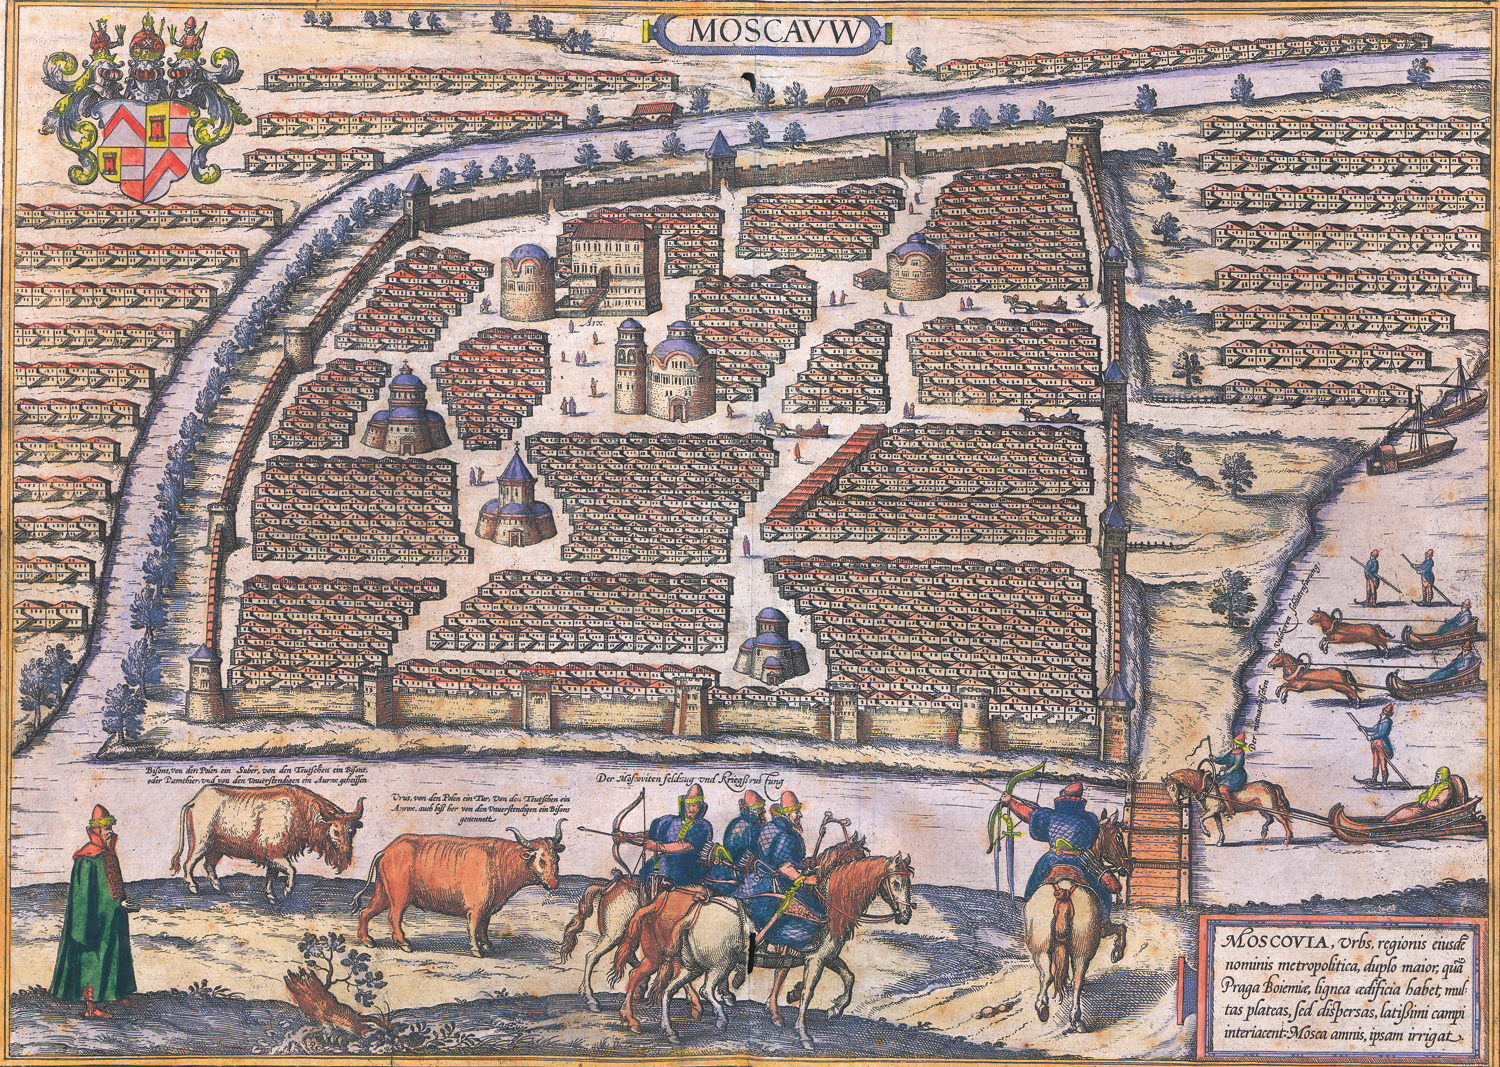 MOSCAVW
Arx.
Der Moscoviten Schlittenfarung
Bisont, von den Polen ein Suber, von den Teutschen ein Bisont,
oder Damthier, und von den Unverstendigen ein Aurox geheissen
Urus, von den Polen ein Tur, Von den Teutschen ein
Aurox, auch biss her von den Unverstendigen ein Bisont
genennett.
Der Moscoviten feldzug und Kriegssrustung
MOSCOVIA, Vrbs, regionis eiusdē
nominis metropolitica, duplo maior, quā
Praga Boiemiæ, lignea ædificia habet, mul-
tas plateas, sed dispersas, latissimi campi
interiacent: Mosca amnis, ipsam irrigat.